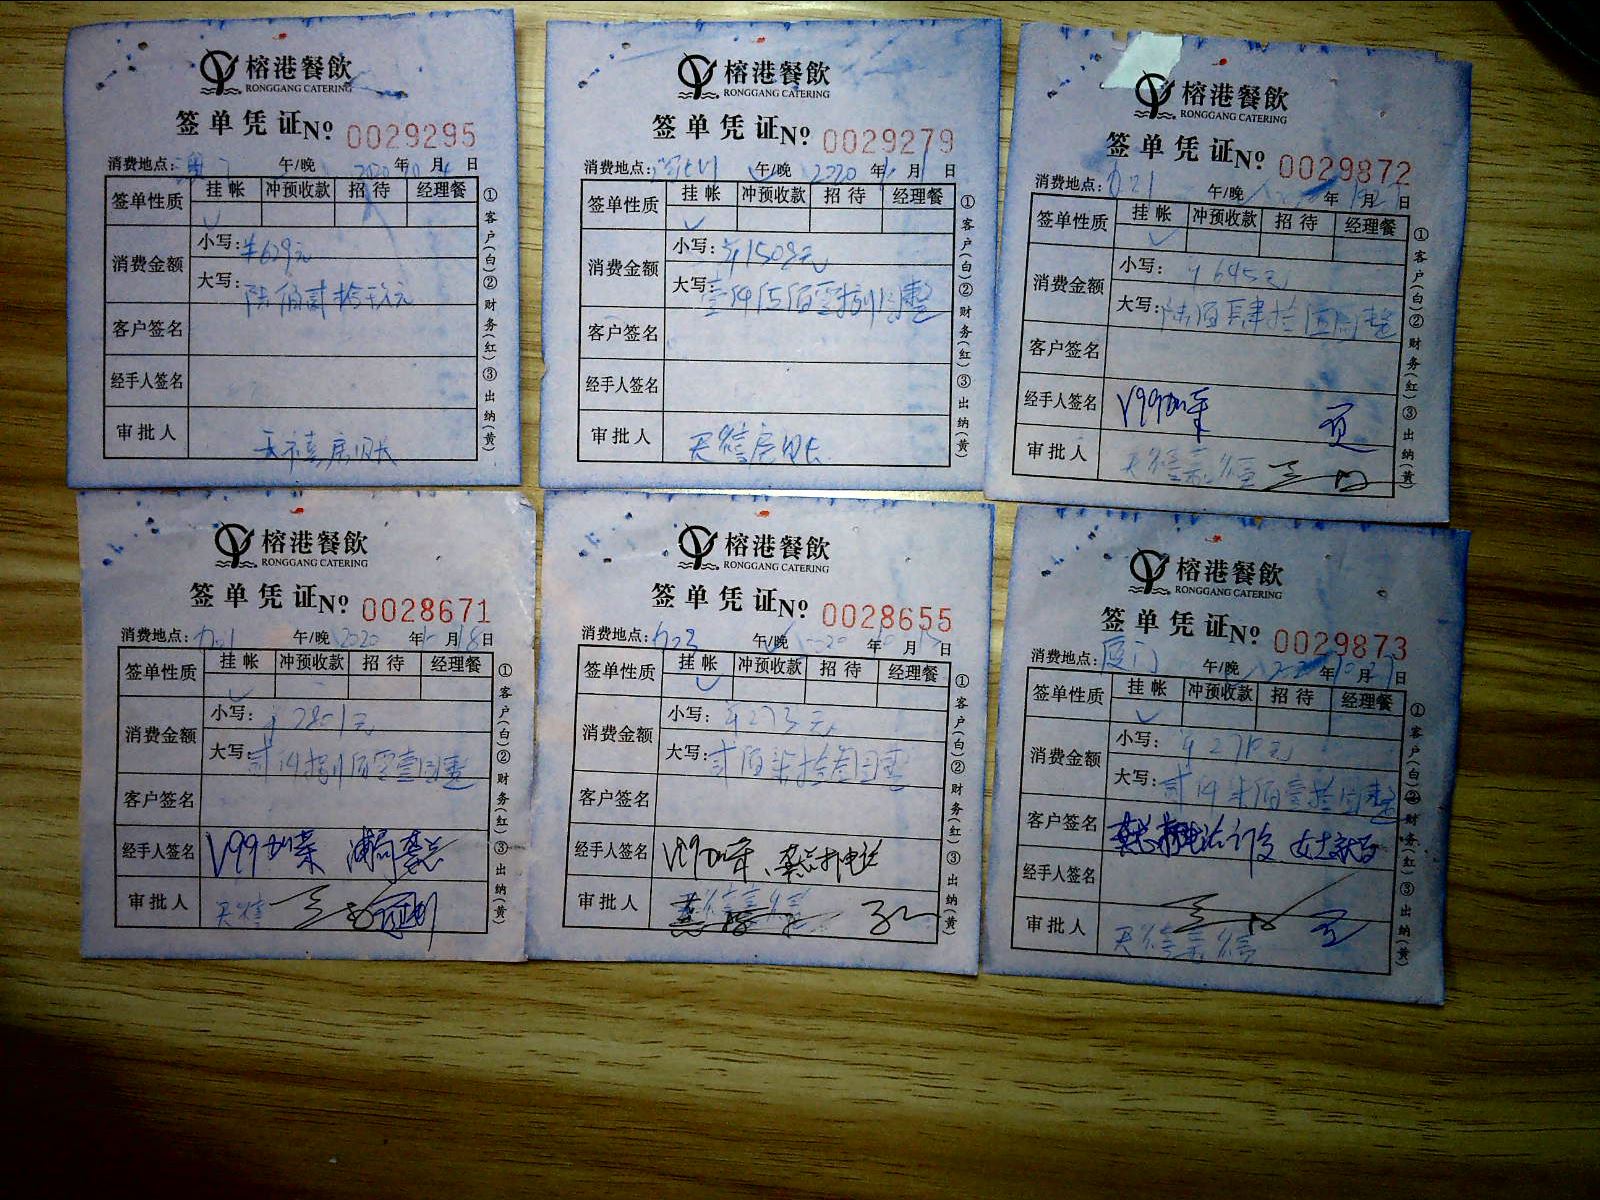 榕港餐飲
RONGGANG CATERING
签单凭证 No 0029295
消费地点: 澳门 午/晚 2020年 月 日
签单性质 挂帐 冲预收款 招待 经理餐
消费金额 小写: ¥629元
大写: 陆佰贰拾玖元
客户签名
经手人签名
审批人
①客户(白)②财务(红)③出纳(黄)
榕港餐飲
RONGGANG CATERING
签单凭证 No 0029279
消费地点: 午/晚 2020年 月 日
签单性质 挂帐 冲预收款 招待 经理餐
消费金额 小写: ¥1508元
大写: 壹仟伍佰零捌圆整
客户签名
经手人签名
审批人
①客户(白)②财务(红)③出纳(黄)
榕港餐飲
RONGGANG CATERING
签单凭证 No 0029872
消费地点: 午/晚 年 月 日
签单性质 挂帐 冲预收款 招待 经理餐
消费金额 小写: ¥645元
大写: 陆佰肆拾伍圆整
客户签名
经手人签名 V99加菜
审批人
①客户(白)②财务(红)③出纳(黄)
榕港餐飲
RONGGANG CATERING
签单凭证 No 0028671
消费地点: 午/晚 2020年 月18日
签单性质 挂帐 冲预收款 招待 经理餐
消费金额 小写: ¥2801元
大写: 贰仟捌佰零壹圆整
客户签名
经手人签名 V99加菜
审批人
①客户(白)②财务(红)③出纳(黄)
榕港餐飲
RONGGANG CATERING
签单凭证 No 0028655
消费地点: 午/晚 年 月 日
签单性质 挂帐 冲预收款 招待 经理餐
消费金额 小写: ¥273元
大写: 贰佰柒拾叁圆整
客户签名
经手人签名 打电话
审批人
①客户(白)②财务(红)③出纳(黄)
榕港餐飲
RONGGANG CATERING
签单凭证 No 0029873
消费地点: 厦门 午/晚 年10月27日
签单性质 挂帐 冲预收款 招待 经理餐
消费金额 小写: ¥2710元
大写: 贰仟柒佰壹拾圆整
客户签名
经手人签名
审批人
①客户(白)②财务(红)③出纳(黄)